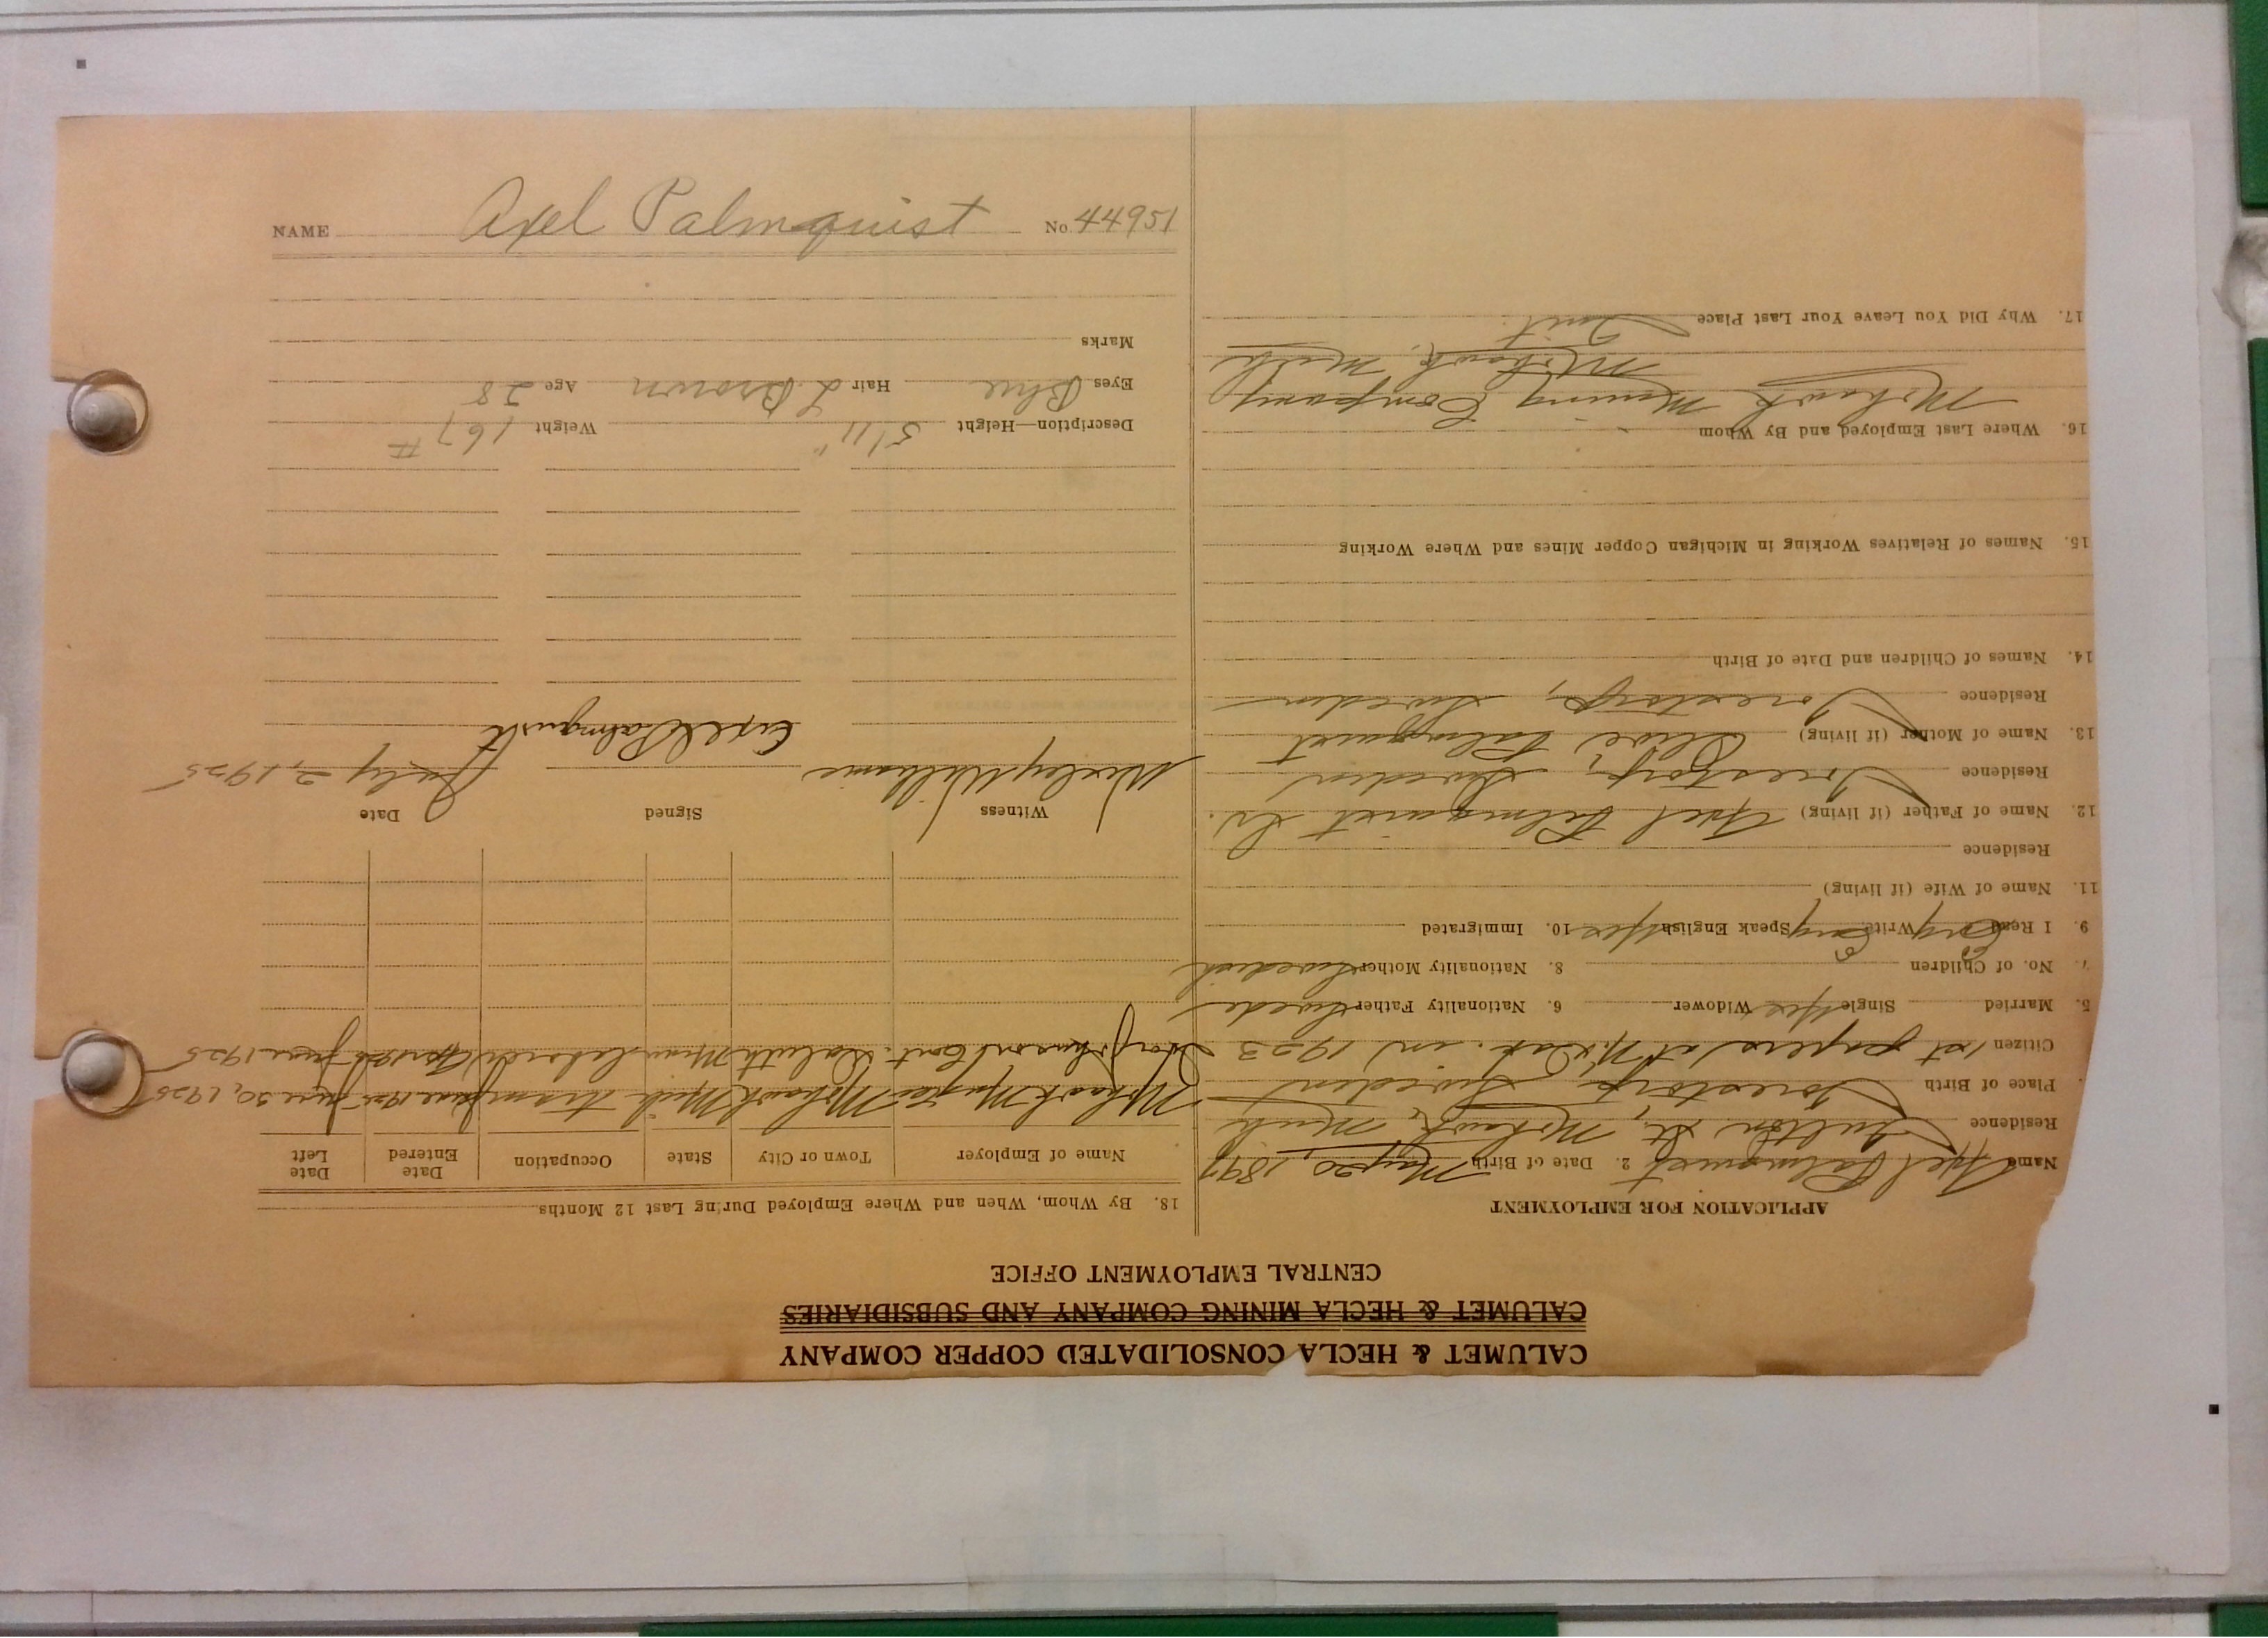 CALUMET & HECLA CONSOLIDATED COPPER COMPANY
CALUMET & HECLA MINING COMPANY AND SUBSIDIARIES
CENTRAL EMPLOYMENT OFFICE
APPLICATION FOR EMPLOYMENT
Name Axel Palmquist 2. Date of Birth May 20, 1897
Residence Fulton St., Mohawk, Mich
Place of Birth Torestorp Sweden
Citizen 1st papers at in 1923
5. Married Single Yes Widower 6. Nationality Father Swede
7. No. of Children 8. Nationality Mother Swedish
9. I Read Eng Write Eng Speak English Yes 10. Immigrated
11. Name of Wife (if living)
Residence
12. Name of Father (if living) Axel Palmquist Sr.
Residence Torestorp, Sweden
13. Name of Mother (if living) Palmquist
Residence Torestorp, Sweden
14. Names of Children and Date of Birth
15. Names of Relatives Working in Michigan Copper Mines and Where Working
16. Where Last Employed and By Whom
Mohawk Mining Company
Mohawk, Mich
17. Why Did You Leave Your Last Place Quit.
18. By Whom, When and Where Employed During Last 12 Months
Name of Employer Town or City State Occupation Date Entered Date Left
Mohawk Mng Co Mohawk Mich tram June 1925 June 30, 1925
Johnson Cont. Duluth Minn laborer June 1925
Witness Signed Date
Wesley Williams Axel Palmquist July 2, 1925
Description—Height 5'11" Weight 167 #
Eyes Blue Hair L Brown Age 28
Marks
NAME Axel Palmquist No. 44951